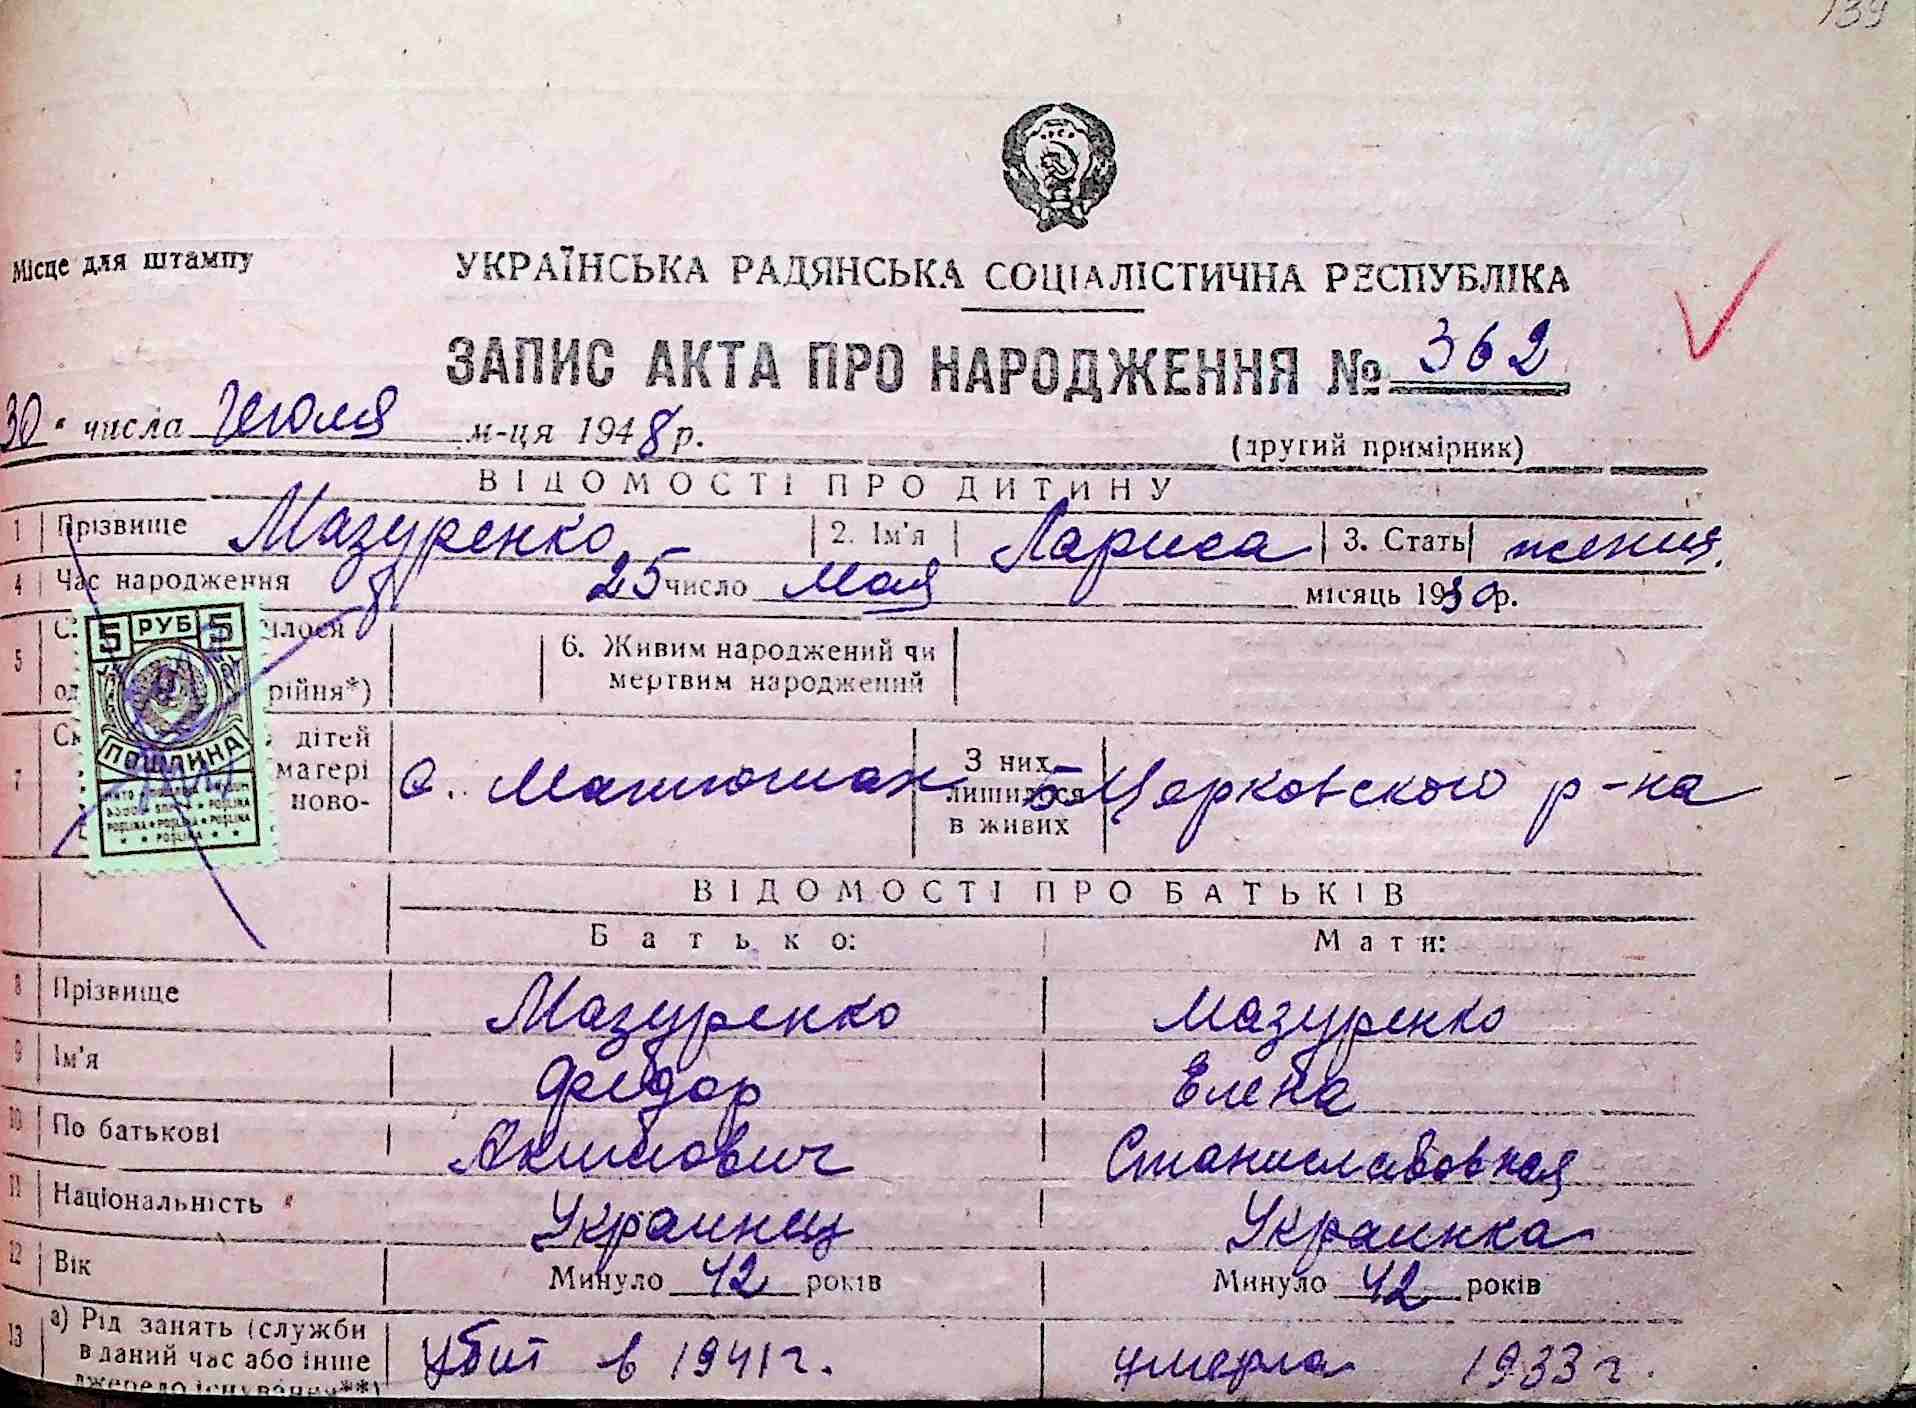 139
Місце для штампу
УКРАЇНСЬКА РАДЯНСЬКА СОЦІАЛІСТИЧНА РЕСПУБЛІКА
ЗАПИС АКТА ПРО НАРОДЖЕННЯ № 362
30 " числа Июля м-ця 1948 р.
(другий примірник)
ВІДОМОСТІ ПРО ДИТИНУ
1 Прізвище Мазуренко 2. Ім'я Лариса 3. Стать женщ.
4 Час народження 25 число Мая місяць 1930р.
5 6. Живим народжений чи мертвим народжений
рійня*)
5 РУБ 5
ПОШЛИНА
7 дітей
матері
ново-
З них лишилося в живих
с. Матюшах Б-Церковского р-на
ВІДОМОСТІ ПРО БАТЬКІВ
Батько: Мати:
8 Прізвище Мазуренко Мазуренко
9 Ім'я Федор Елена
10 По батькові Акимович Станиславовная
11 Національність Украинец Украинка
12 Вік Минуло 42 років Минуло 42 років
13 а) Рід занять (служби
в даний час або інше
джерело існування**)
убит в 1941г. умерла 1933г.